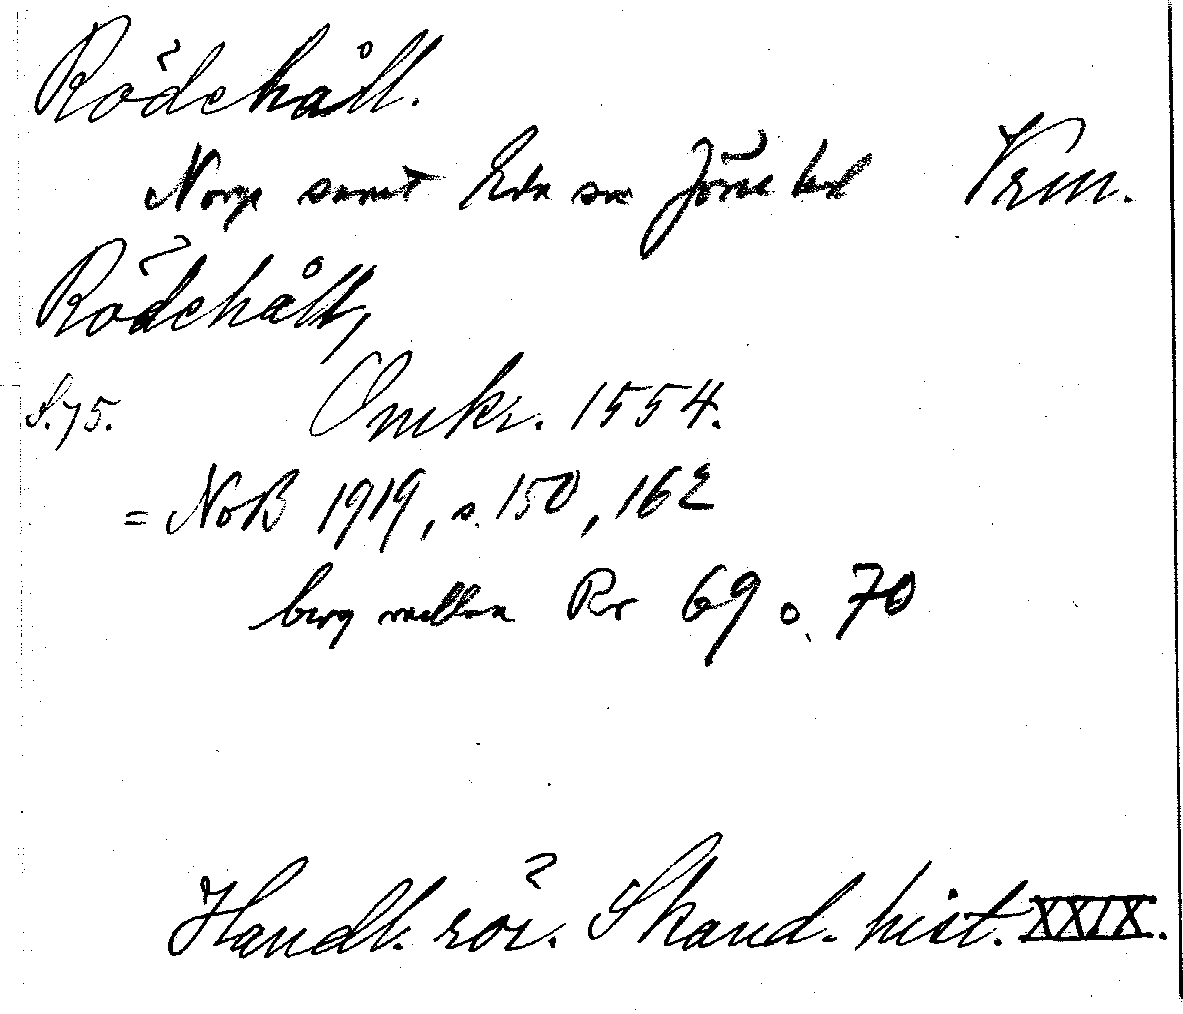 Rödehåll.
Norge samt Eda sn Jösse hd Vrm.
Rödehåll,
S. 75. Omkr. 1554.
= NoB 1919, s. 150, 162
berg mellan Rr 69 o. 70
Handl. rör. Skand. hist. XXIX.